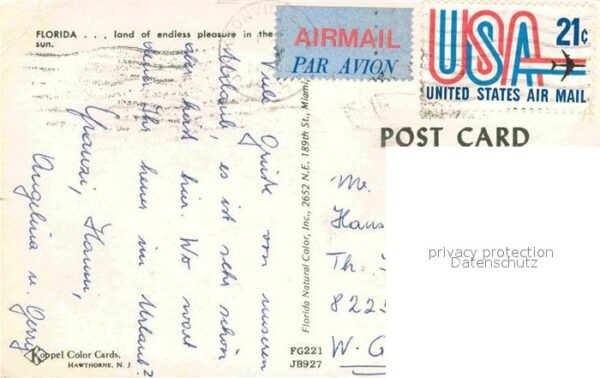 FLORIDA . . . land of endless pleasure in the
sun.
AIRMAIL
PAR AVION
USA 21¢
UNITED STATES AIR MAIL
POST CARD
Viele Grüße von unserem
Urlaub, es ist sehr schön
aber heiß hier. Wo wart
denn Ihr heuer im Urlaub?
Franzi, Hanni,
Angelina u. Gerry
Florida Natural Color, Inc., 2652 N.E. 189th St., Miami,
Mr.
Hans
Th.
8225
W. G
privacy protection
Datenschutz
Koppel Color Cards,
HAWTHORNE, N. J
FG221
JB927